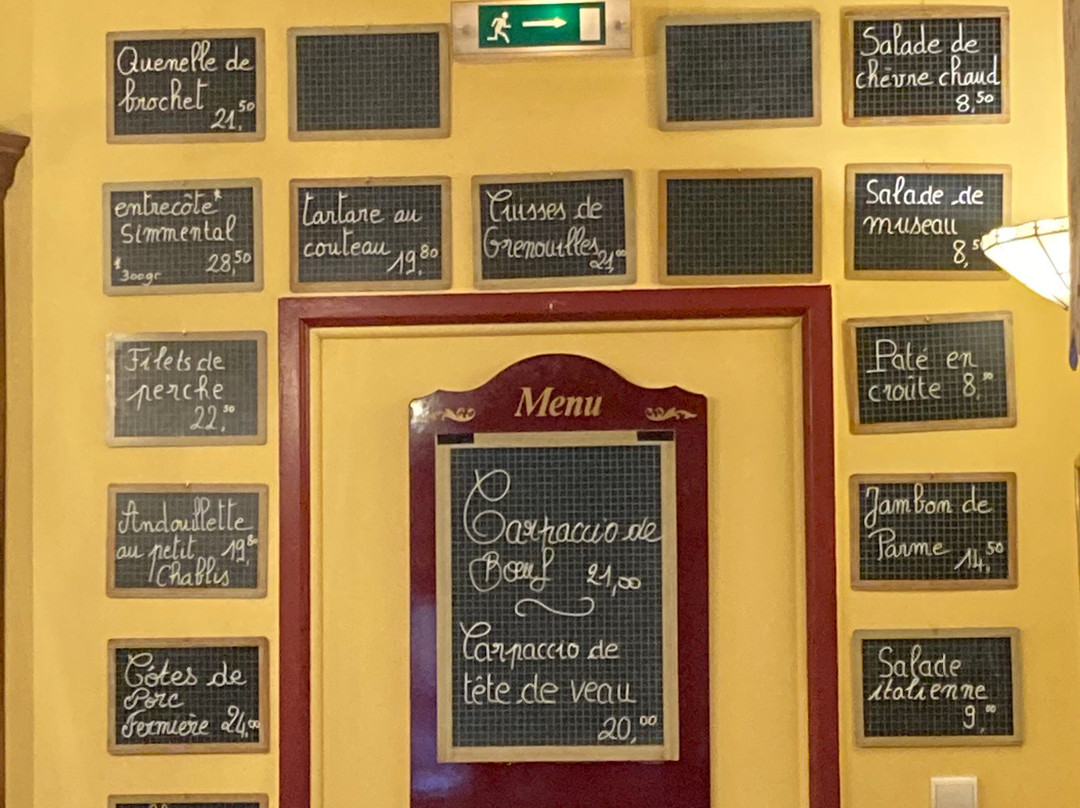 Quenelle de
brochet
21,50
Salade de
chèvre chaud
8,50
entrecôte*
Simmental
*300gr 28,50
tartare au
couteau 19,80
Cuisses de
Grenouilles 21,00
Salade de
museau
8,5
Filets de
perche
22,50
Paté en
croûte 8,50
Menu
Carpaccio de
Bœuf 21,00
Carpaccio de
tête de veau
20,00
Andouillette
au petit 19,80
Chablis
Jambon de
Parme 14,50
Côtes de
Porc
Fermière 24,00
Salade
italienne
9,00